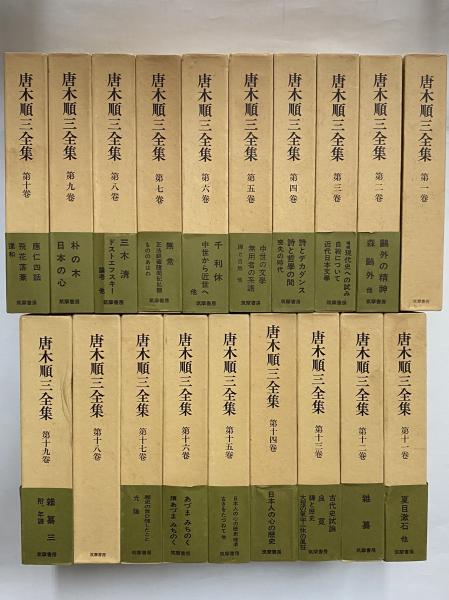 唐木順三全集 第一卷
唐木順三全集 第二卷
鷗外の精神
森鷗外 他
筑摩書房
唐木順三全集 第三卷
現代史への試み
自殺について
近代日本文學
筑摩書房
唐木順三全集 第四卷
詩とデカダンス
詩と哲學の間
喪失の時代
筑摩書房
唐木順三全集 第五卷
中世の文學
無用者の系譜
筑摩書房
唐木順三全集 第六卷
千利休
中世から近世へ
他
筑摩書房
唐木順三全集 第七卷
無常
筑摩書房
唐木順三全集 第八卷
三木清
ドストエフスキー
筑摩書房
唐木順三全集 第九卷
朴の木
日本の心
筑摩書房
唐木順三全集 第十卷
應仁四話
飛花落葉
筑摩書房
唐木順三全集 第十一卷
夏目漱石 他
筑摩書房
唐木順三全集 第十二卷
雜纂
筑摩書房
唐木順三全集 第十三卷
古代史試論
良寛
筑摩書房
唐木順三全集 第十四卷
日本人の心の歷史
筑摩書房
唐木順三全集 第十五卷
筑摩書房
唐木順三全集 第十六卷
あづま みちのく
續あづま みちのく
筑摩書房
唐木順三全集 第十七卷
光陰
筑摩書房
唐木順三全集 第十八卷
筑摩書房
唐木順三全集 第十九卷
雜纂 三
附、年譜
筑摩書房